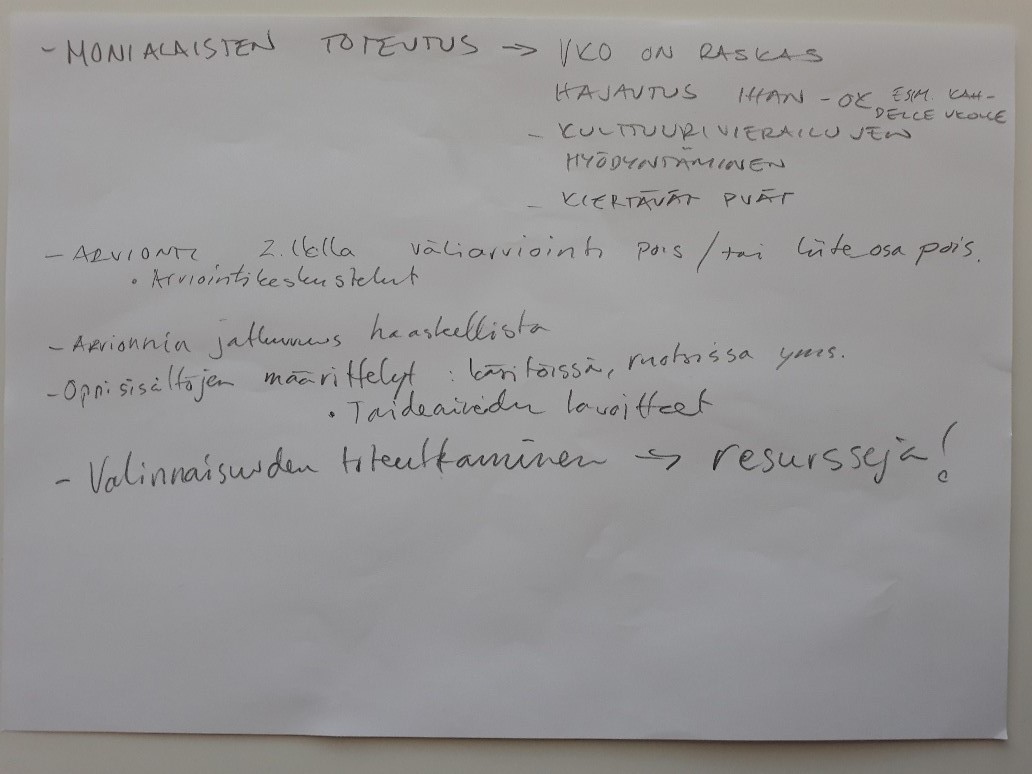 - MONIALAISTEN TOTEUTUS → VKO ON RASKAS
HAJAUTUS IHAN - OK ESIM. KAH-
DELLE VKOLLE
- KULTTUURIVIERAILUJEN
HYÖDYNTÄMINEN
- KIERTÄVÄT PVÄT
- ARVIONTI 2. lklla väliarviointi pois / tai liiteosa pois.
• Arviointikeskustelut
- Arvionnin jatkumus haaskellista
- Oppisisältöjen määrittelyt : käsitöissä, ruotsissa yms.
• Taideaineiden tavoitteet
- Valinnaisuuden toteuttaminen → resursseja!